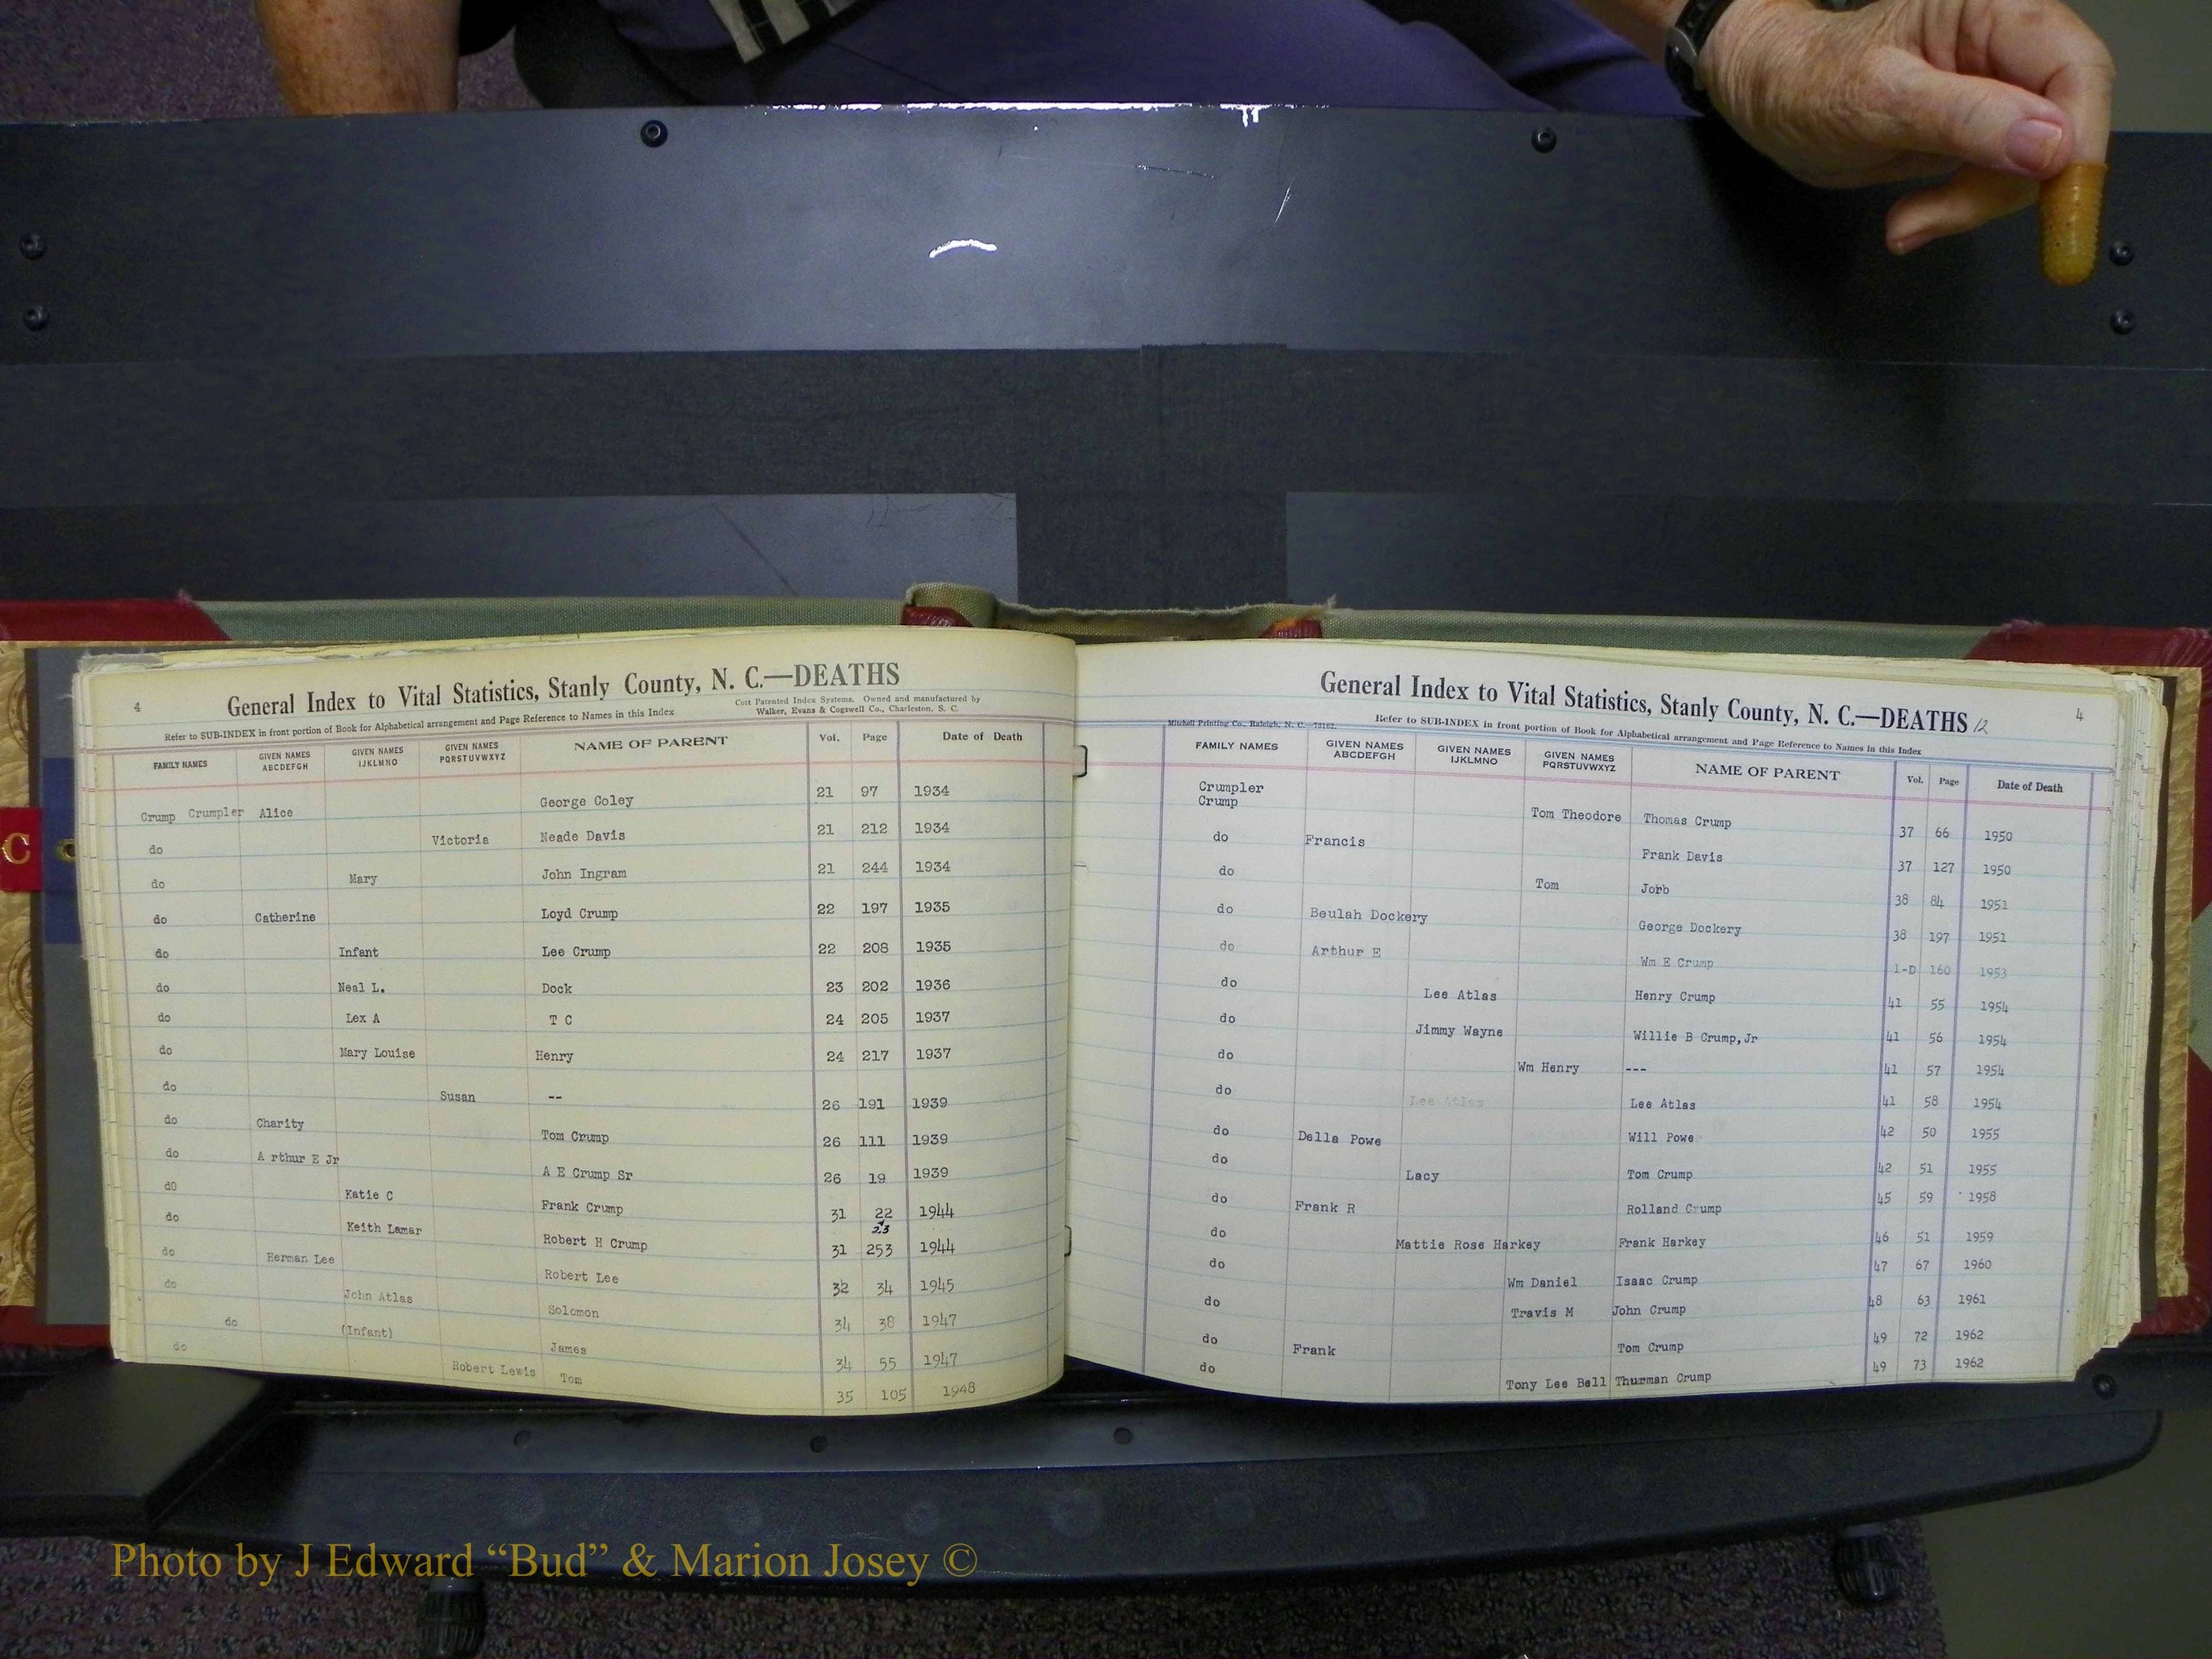 4
General Index to Vital Statistics, Stanly County, N. C.—DEATHS
Refer to SUB-INDEX in front portion of Book for Alphabetical arrangement and Page Reference to Names in this Index
Cott Patented Index Systems. Owned and manufactured by
Walker, Evans & Cogswell Co., Charleston, S. C.
FAMILY NAMES GIVEN NAMES ABCDEFGH GIVEN NAMES IJKLMNO GIVEN NAMES PQRSTUVWXYZ NAME OF PARENT Vol. Page Date of Death
Crump Crumpler Alice George Coley 21 97 1934
do Victoria Neade Davis 21 212 1934
do Mary John Ingram 21 244 1934
do Catherine Loyd Crump 22 197 1935
do Infant Lee Crump 22 208 1935
do Neal L. Dock 23 202 1936
do Lex A T C 24 205 1937
do Mary Louise Henry 24 217 1937
do Susan -- 26 191 1939
do Charity Tom Crump 26 111 1939
do A rthur E Jr A E Crump Sr 26 19 1939
do Katie C Frank Crump 31 22 23 1944
do Keith Lamar Robert H Crump 31 253 1944
do Herman Lee Robert Lee 32 34 1945
do John Atlas Solomon 34 38 1947
do (Infant) James 34 55 1947
do Robert Lewis Tom 35 105 1948
General Index to Vital Statistics, Stanly County, N. C.—DEATHS 12
4
Mitchell Printing Co., Raleigh, N. C.
Refer to SUB-INDEX in front portion of Book for Alphabetical arrangement and Page Reference to Names in this Index
FAMILY NAMES GIVEN NAMES ABCDEFGH GIVEN NAMES IJKLMNO GIVEN NAMES PQRSTUVWXYZ NAME OF PARENT Vol. Page Date of Death
Crumpler
Crump Tom Theodore Thomas Crump 37 66 1950
do Francis Frank Davis 37 127 1950
do Tom Jorb 38 84 1951
do Beulah Dockery George Dockery 38 197 1951
do Arthur E Wm E Crump 1-D 160 1953
do Lee Atlas Henry Crump 41 55 1954
do Jimmy Wayne Willie B Crump,Jr 41 56 1954
do Wm Henry --- 41 57 1954
do Lee Atlas Lee Atlas 41 58 1954
do Della Powe Will Powe 42 50 1955
do Lacy Tom Crump 42 51 1955
do Frank R Rolland Crump 45 59 1958
do Mattie Rose Harkey Frank Harkey 46 51 1959
do Wm Daniel Isaac Crump 47 67 1960
do Travis M John Crump 48 63 1961
do Frank Tom Crump 49 72 1962
do Tony Lee Bell Thurman Crump 49 73 1962
C
Photo by J Edward “Bud” & Marion Josey ©